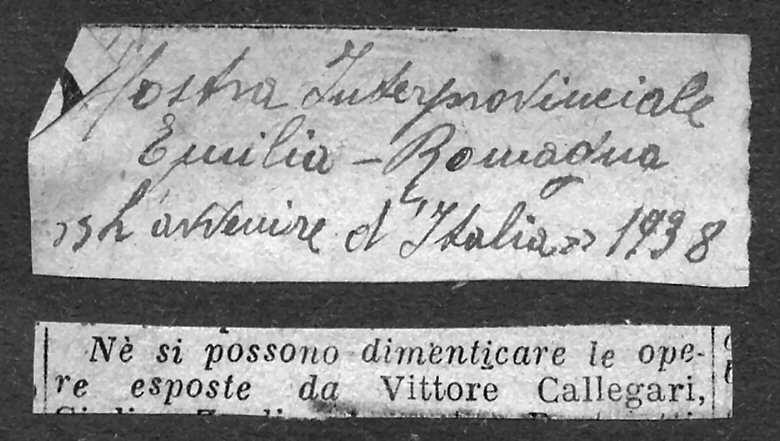 Mostra Interprovinciale
Emilia - Romagna
»L'avvenire d'Italia» 1938
Nè si possono dimenticare le ope-
re esposte da Vittore Callegari,